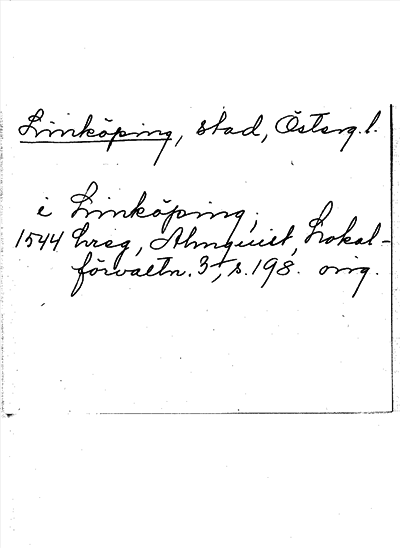 Linköping, stad, Österg.l.
i Linköping,
1544 hreg, Almquist, Lokal-
förvaltn. 3, s. 198. orig.